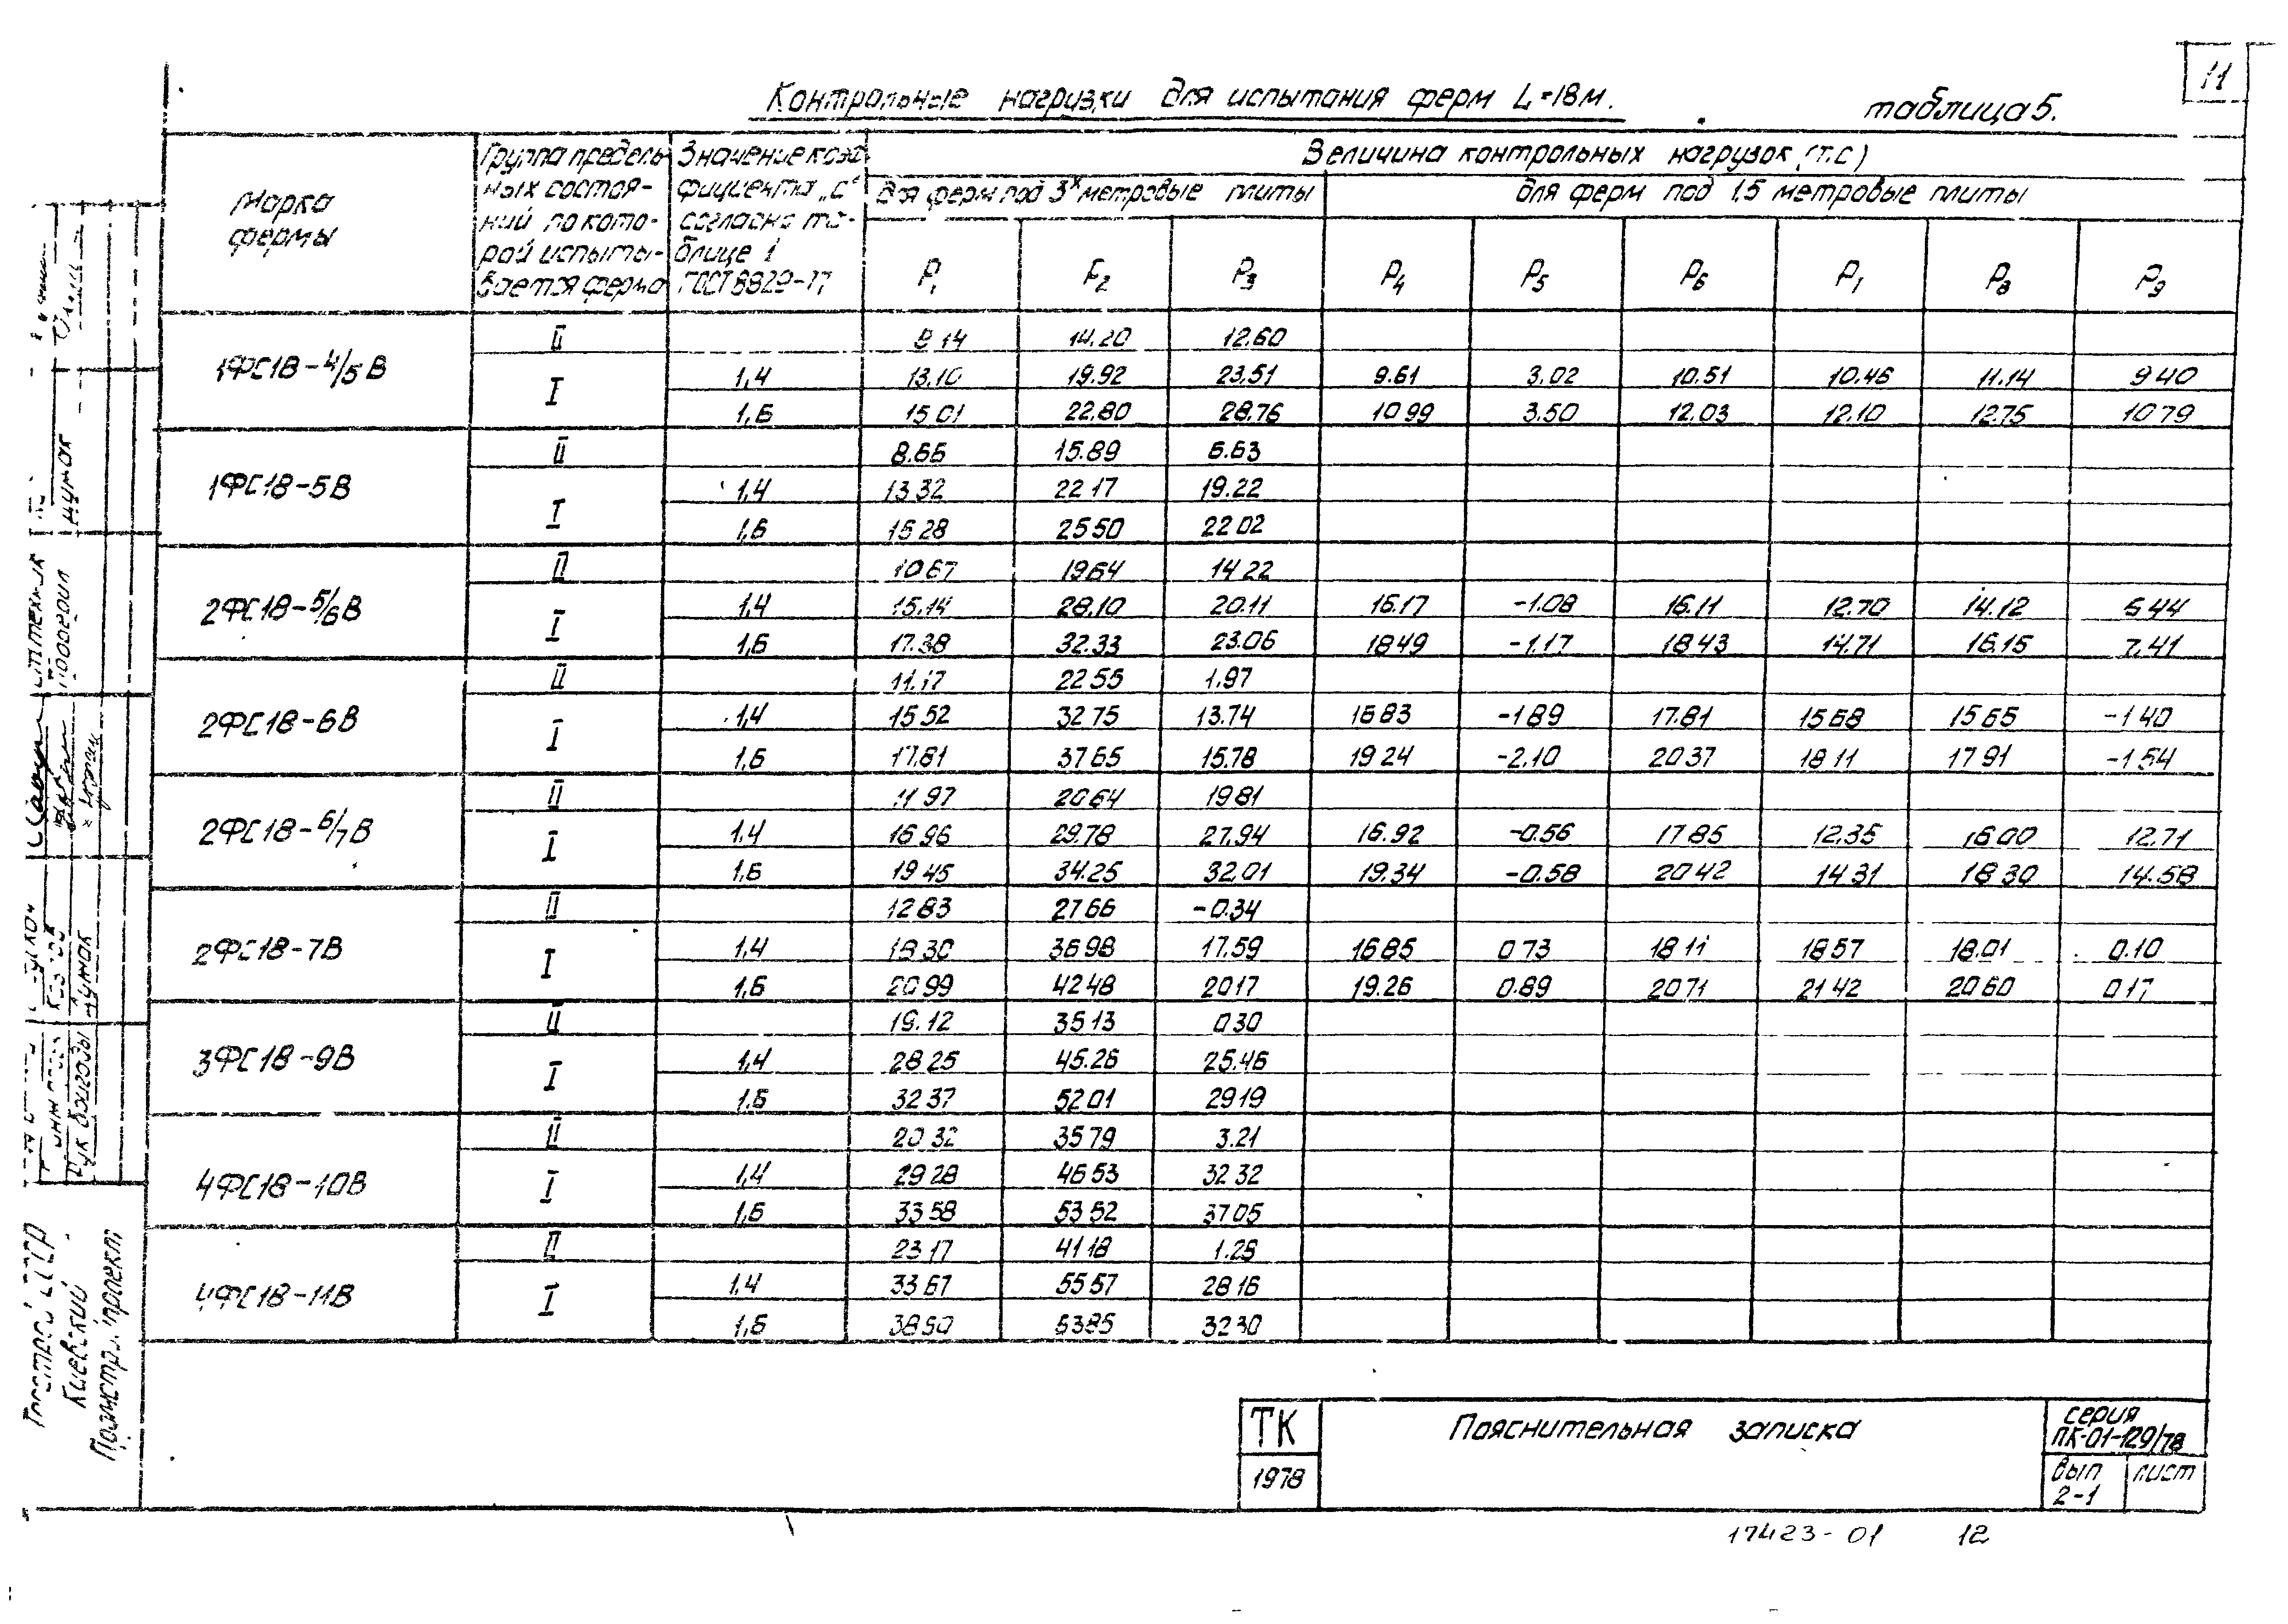 11
Контрольные нагрузки для испытания ферм L=18м.
таблица 5.
Марка фермы
Группа предельных состояний по которой испытывается ферма
Значение коэффициента „С“ согласно таблице 1 ГОСТ 8829-77
Величина контрольных нагрузок (т.с)
для ферм под 3х метровые плиты
для ферм под 1,5 метровые плиты
P1 P2 P3 P4 P5 P6 P7 P8 P9
1ФС18-4/5В
II 8.14 14.20 12.60
I 1,4 13.10 19.92 23.51 9.61 3.02 10.51 10.46 11.14 9.40
1,6 15.01 22.80 28.76 10.99 3.50 12.03 12.10 12.75 10.79
1ФС18-5В
II 8.66 15.89 6.63
I 1,4 13.32 22.17 19.22
1,6 15.28 25.50 22.02
2ФС18-5/6В
II 10.67 19.64 14.22
I 1,4 15.14 28.10 20.11 16.17 -1.08 16.11 12.70 14.12 6.44
1,6 17.38 32.33 23.06 18.49 -1.17 18.43 14.71 16.15 7.41
2ФС18-6В
II 11.17 22.55 1.97
I 1,4 15.52 32.75 13.74 16.83 -1.89 17.81 15.68 15.65 -1.40
1,6 17.81 37.65 15.78 19.24 -2.10 20.37 18.11 17.91 -1.54
2ФС18-6/7В
II 11.97 20.64 19.81
I 1,4 16.96 29.78 27.94 16.92 -0.56 17.85 12.35 16.00 12.71
1,6 19.45 34.25 32.01 19.34 -0.58 20.42 14.31 18.30 14.58
2ФС18-7В
II 12.83 27.66 -0.34
I 1,4 18.30 36.98 17.59 16.85 0.73 18.11 18.57 18.01 0.10
1,6 20.99 42.48 20.17 19.26 0.89 20.71 21.42 20.60 0.17
3ФС18-9В
II 19.12 35.13 0.30
I 1,4 28.25 45.26 25.46
1,6 32.37 52.01 29.19
4ФС18-10В
II 20.32 35.79 3.21
I 1,4 29.28 46.53 32.32
1,6 33.58 53.52 37.05
4ФС18-11В
II 23.17 41.18 1.25
I 1,4 33.67 55.57 28.16
1,6 38.50 63.85 32.30
Госстрой СССР
Киевский
Промстройпроект
Рук. бригады
Думок
Думок
ТК
1978
Пояснительная записка
серия
ПК-01-129/78
вып
2-1
лист
17423-01 12